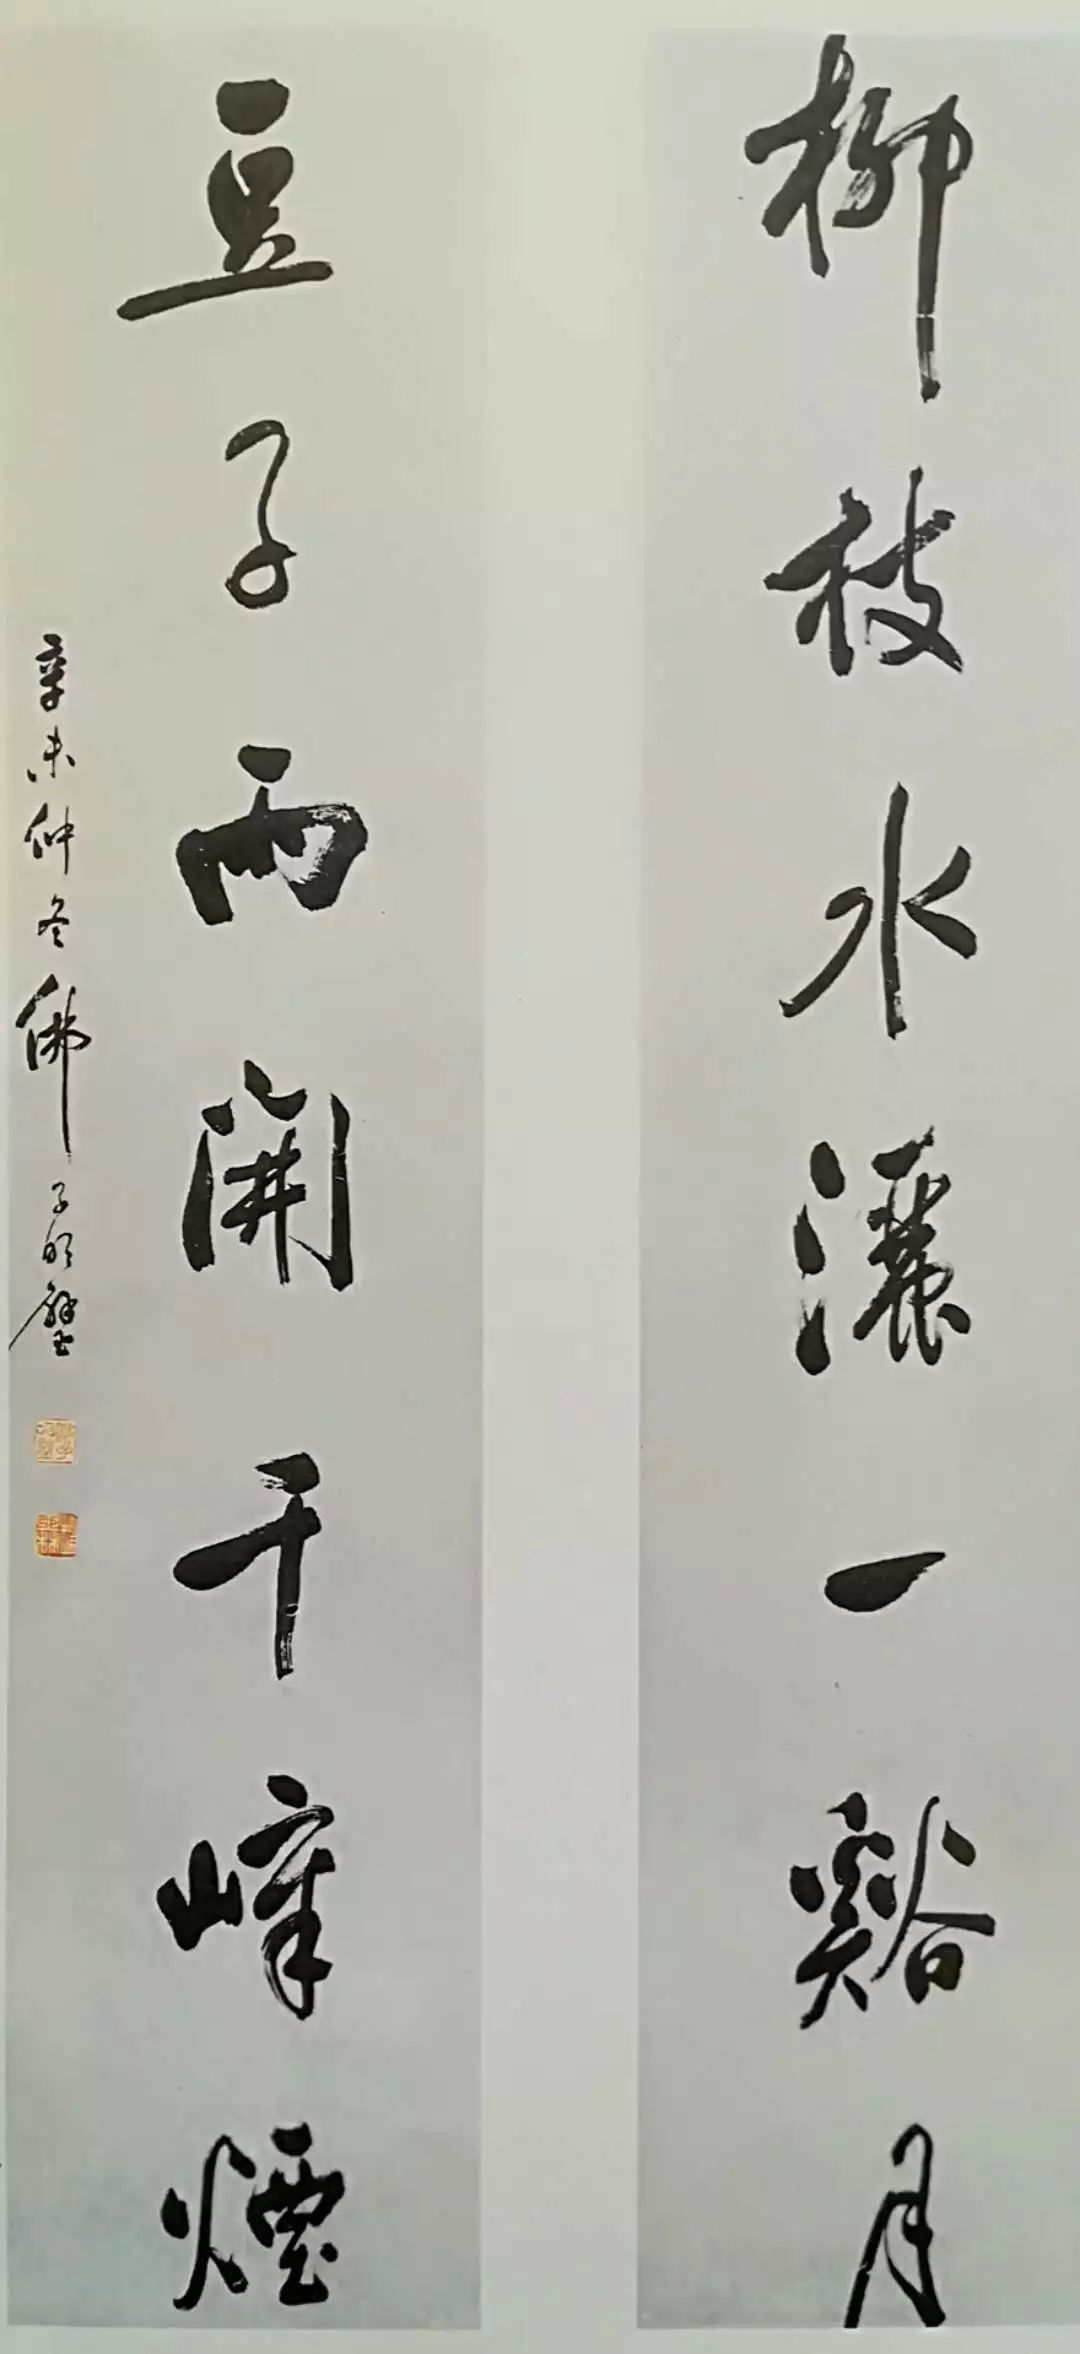 柳枝水灑一谿月
豆子雨開千嶂煙
辛未仲冬佛子明璧